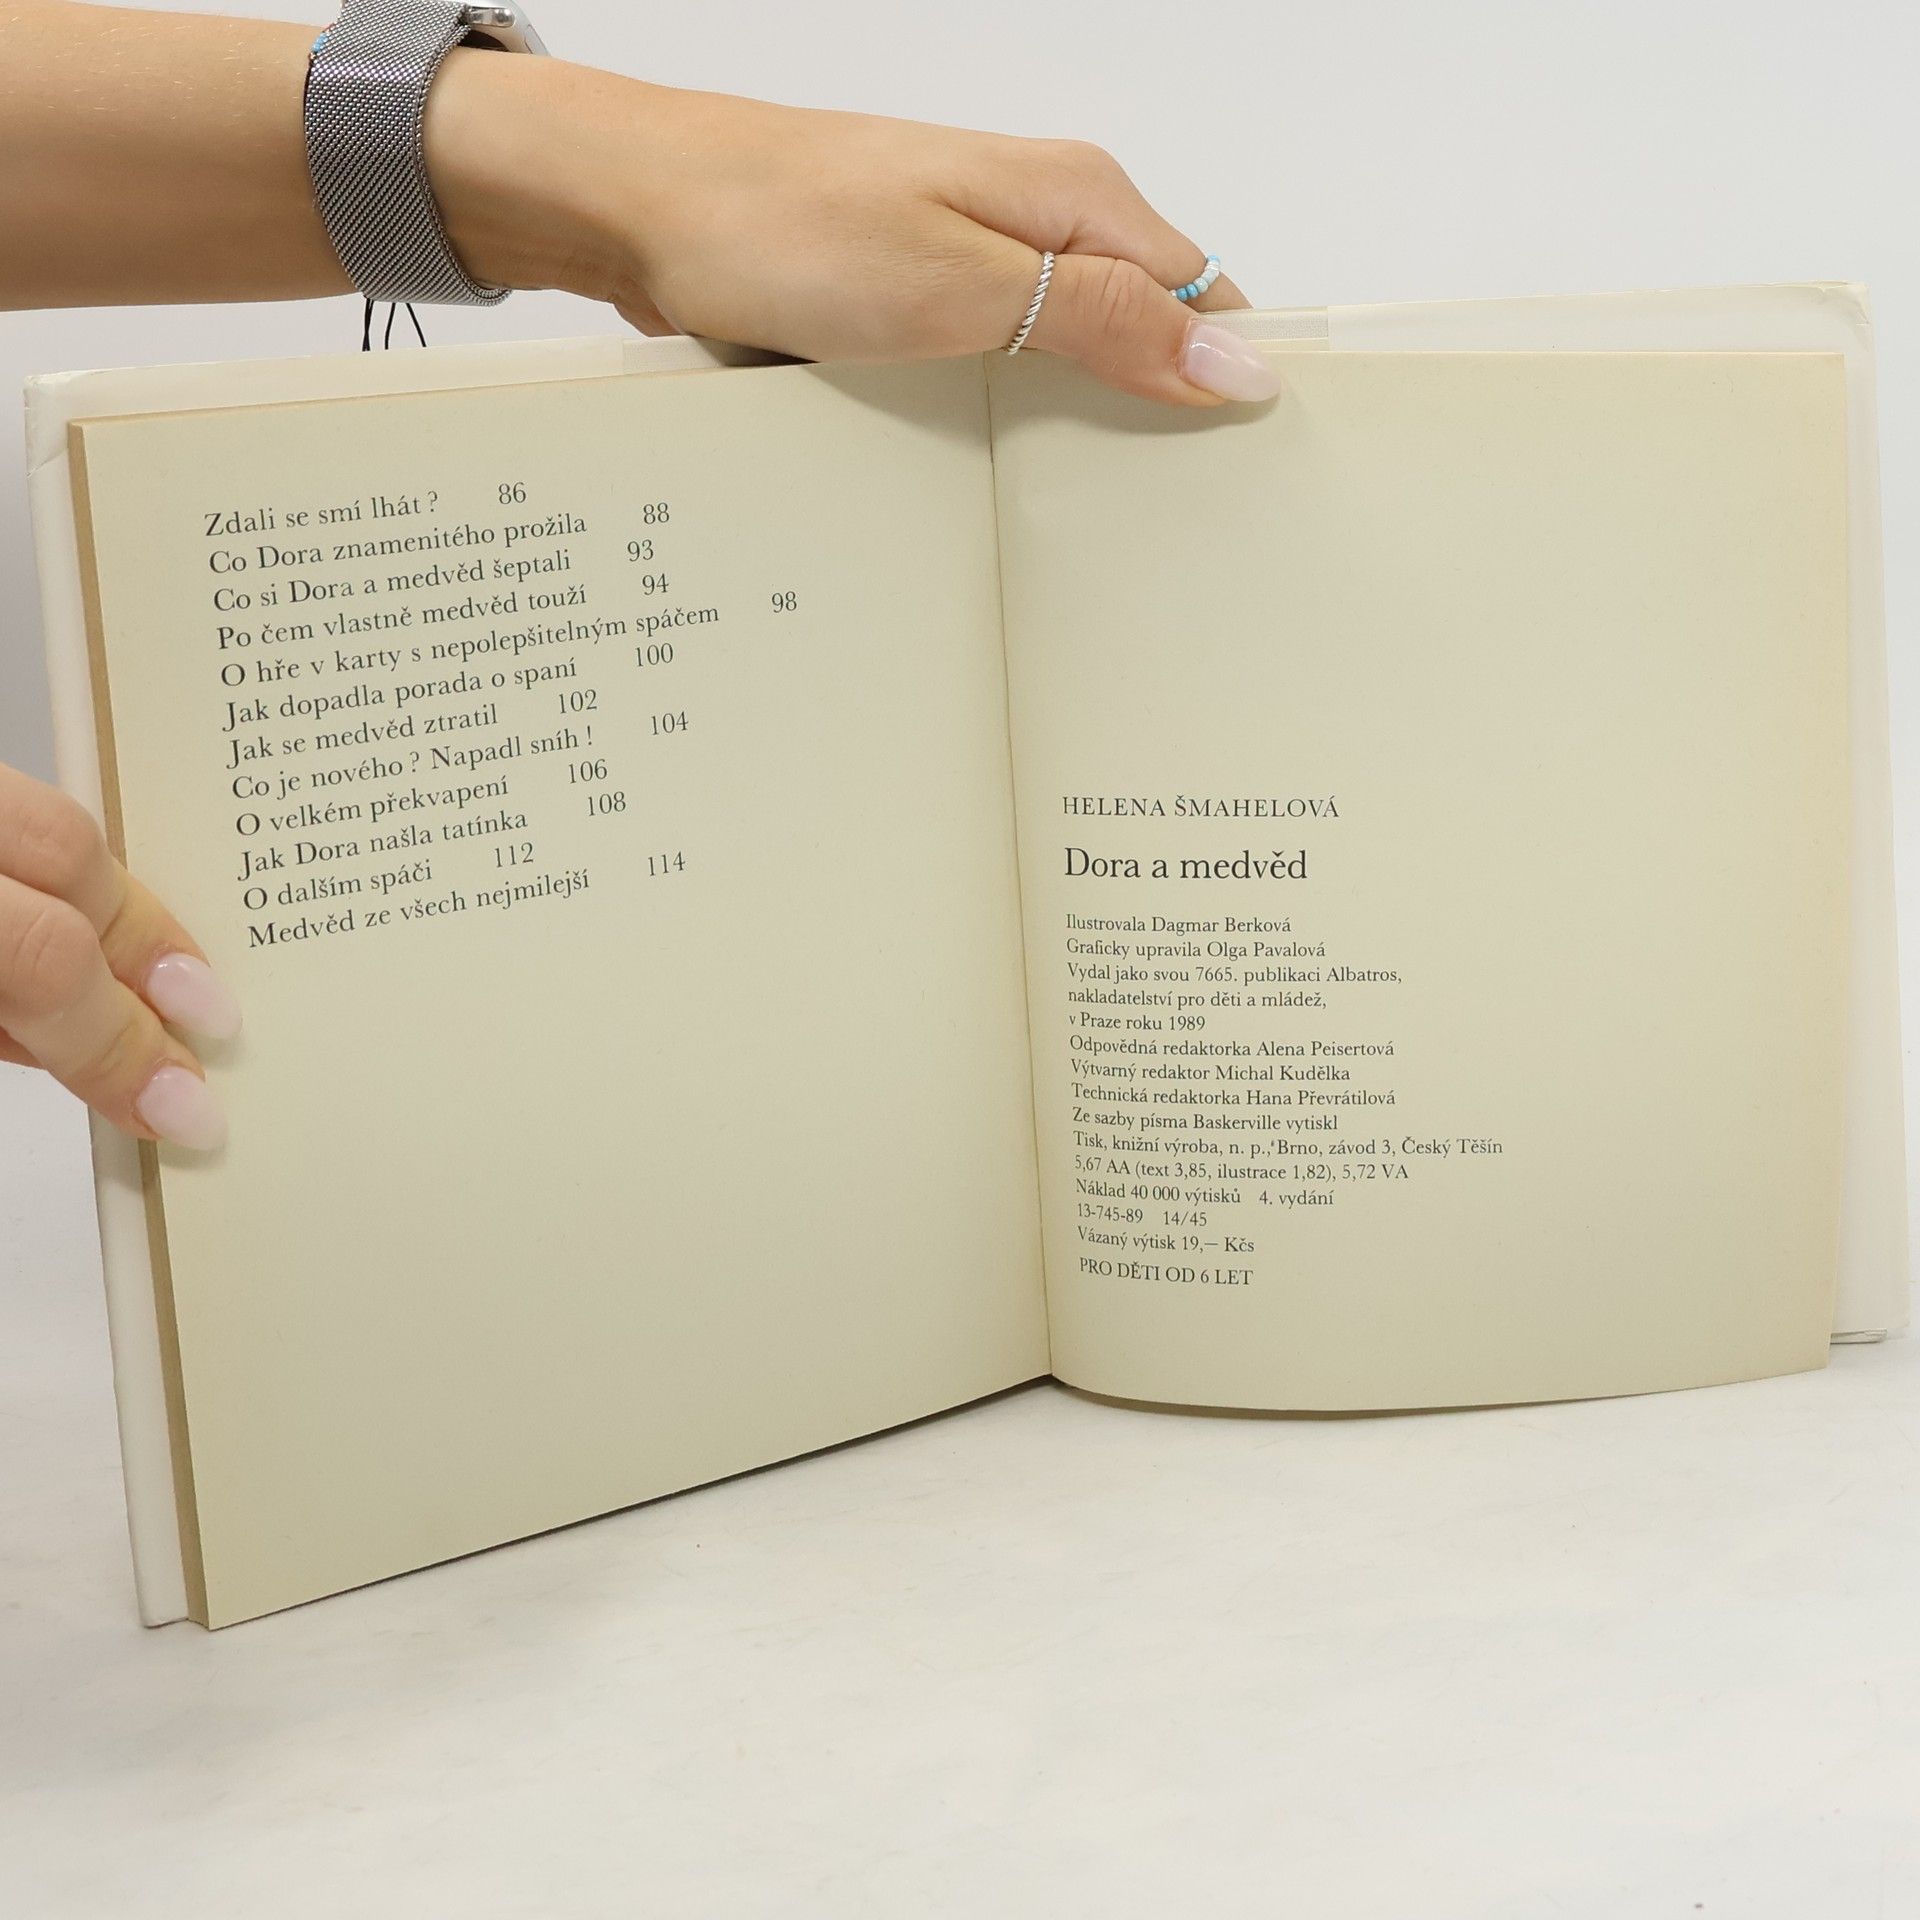 Zdali se smí lhát? 86
Co Dora znamenitého prožila 88
Co si Dora a medvěd šeptali 93
Po čem vlastně medvěd touží 94
O hře v karty s nepolepšitelným spáčem 98
Jak dopadla porada o spaní 100
Jak se medvěd ztratil 102
Co je nového? Napadl sníh! 104
O velkém překvapení 106
Jak Dora našla tatínka 108
O dalším spáči 112
Medvěd ze všech nejmilejší 114
HELENA ŠMAHELOVÁ
Dora a medvěd
Ilustrovala Dagmar Berková
Graficky upravila Olga Pavalová
Vydal jako svou 7665. publikaci Albatros,
nakladatelství pro děti a mládež,
v Praze roku 1989
Odpovědná redaktorka Alena Peisertová
Výtvarný redaktor Michal Kudělka
Technická redaktorka Hana Převrátilová
Ze sazby písma Baskerville vytiskl
Tisk, knižní výroba, n. p., Brno, závod 3, Český Těšín
5,67 AA (text 3,85, ilustrace 1,82), 5,72 VA
Náklad 40 000 výtisků 4. vydání
13-745-89 14/45
Vázaný výtisk 19,— Kčs
PRO DĚTI OD 6 LET